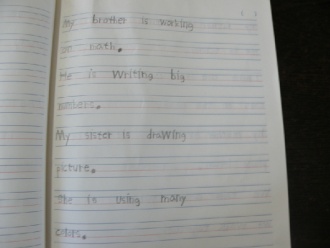 My brother is working
on math.
He is writing big
numbers.
My sister is drawing
picture.
She is using many
colors.